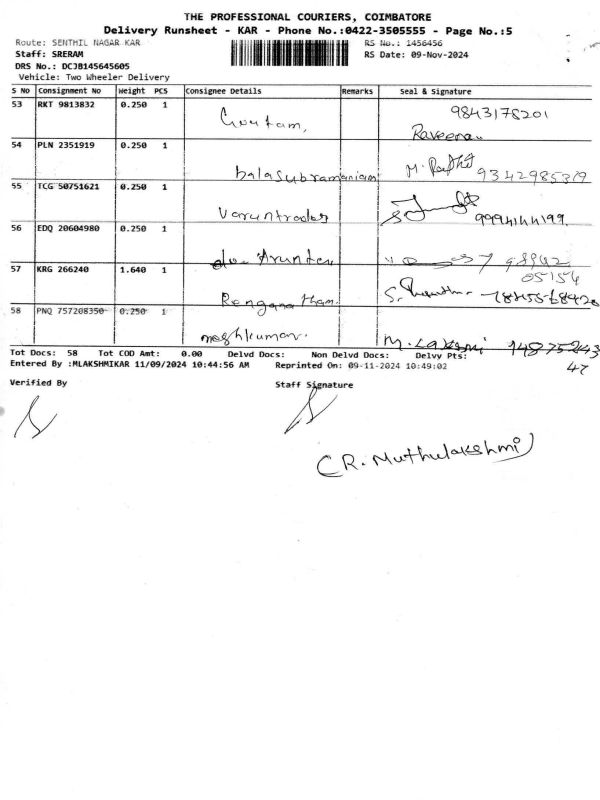 THE PROFESSIONAL COURIERS, COIMBATORE
Delivery Runsheet - KAR - Phone No.:0422-3505555 - Page No.:5
Route: SENTHIL NAGAR KAR RS No.: 1456456
Staff: SRERAM RS Date: 09-Nov-2024
DRS No.: DCJB145645605
Vehicle: Two Wheeler Delivery
S No Consignment No Weight PCS Consignee Details Remarks Seal & Signature
53 RKT 9813832 0.250 1 Goutam, 9843178201
Raveena
54 PLN 2351919 0.250 1
balasubramaniam 9342985319
55 TCG 50751621 0.250 1
Varuntraders 9994144199
56 EDQ 20604980 0.250 1
57 KRG 266240 1.640 1 05154
Renganathan.
58 PNQ 757208350 0.250 1
M. Lakshmi 14875243
47
Tot Docs: 58 Tot COD Amt: 0.00 Delvd Docs: Non Delvd Docs: Delvy Pts:
Entered By :MLAKSHMIKAR 11/09/2024 10:44:56 AM Reprinted On: 09-11-2024 10:49:02
Verified By Staff Signature
(R. Muthulakshmi)